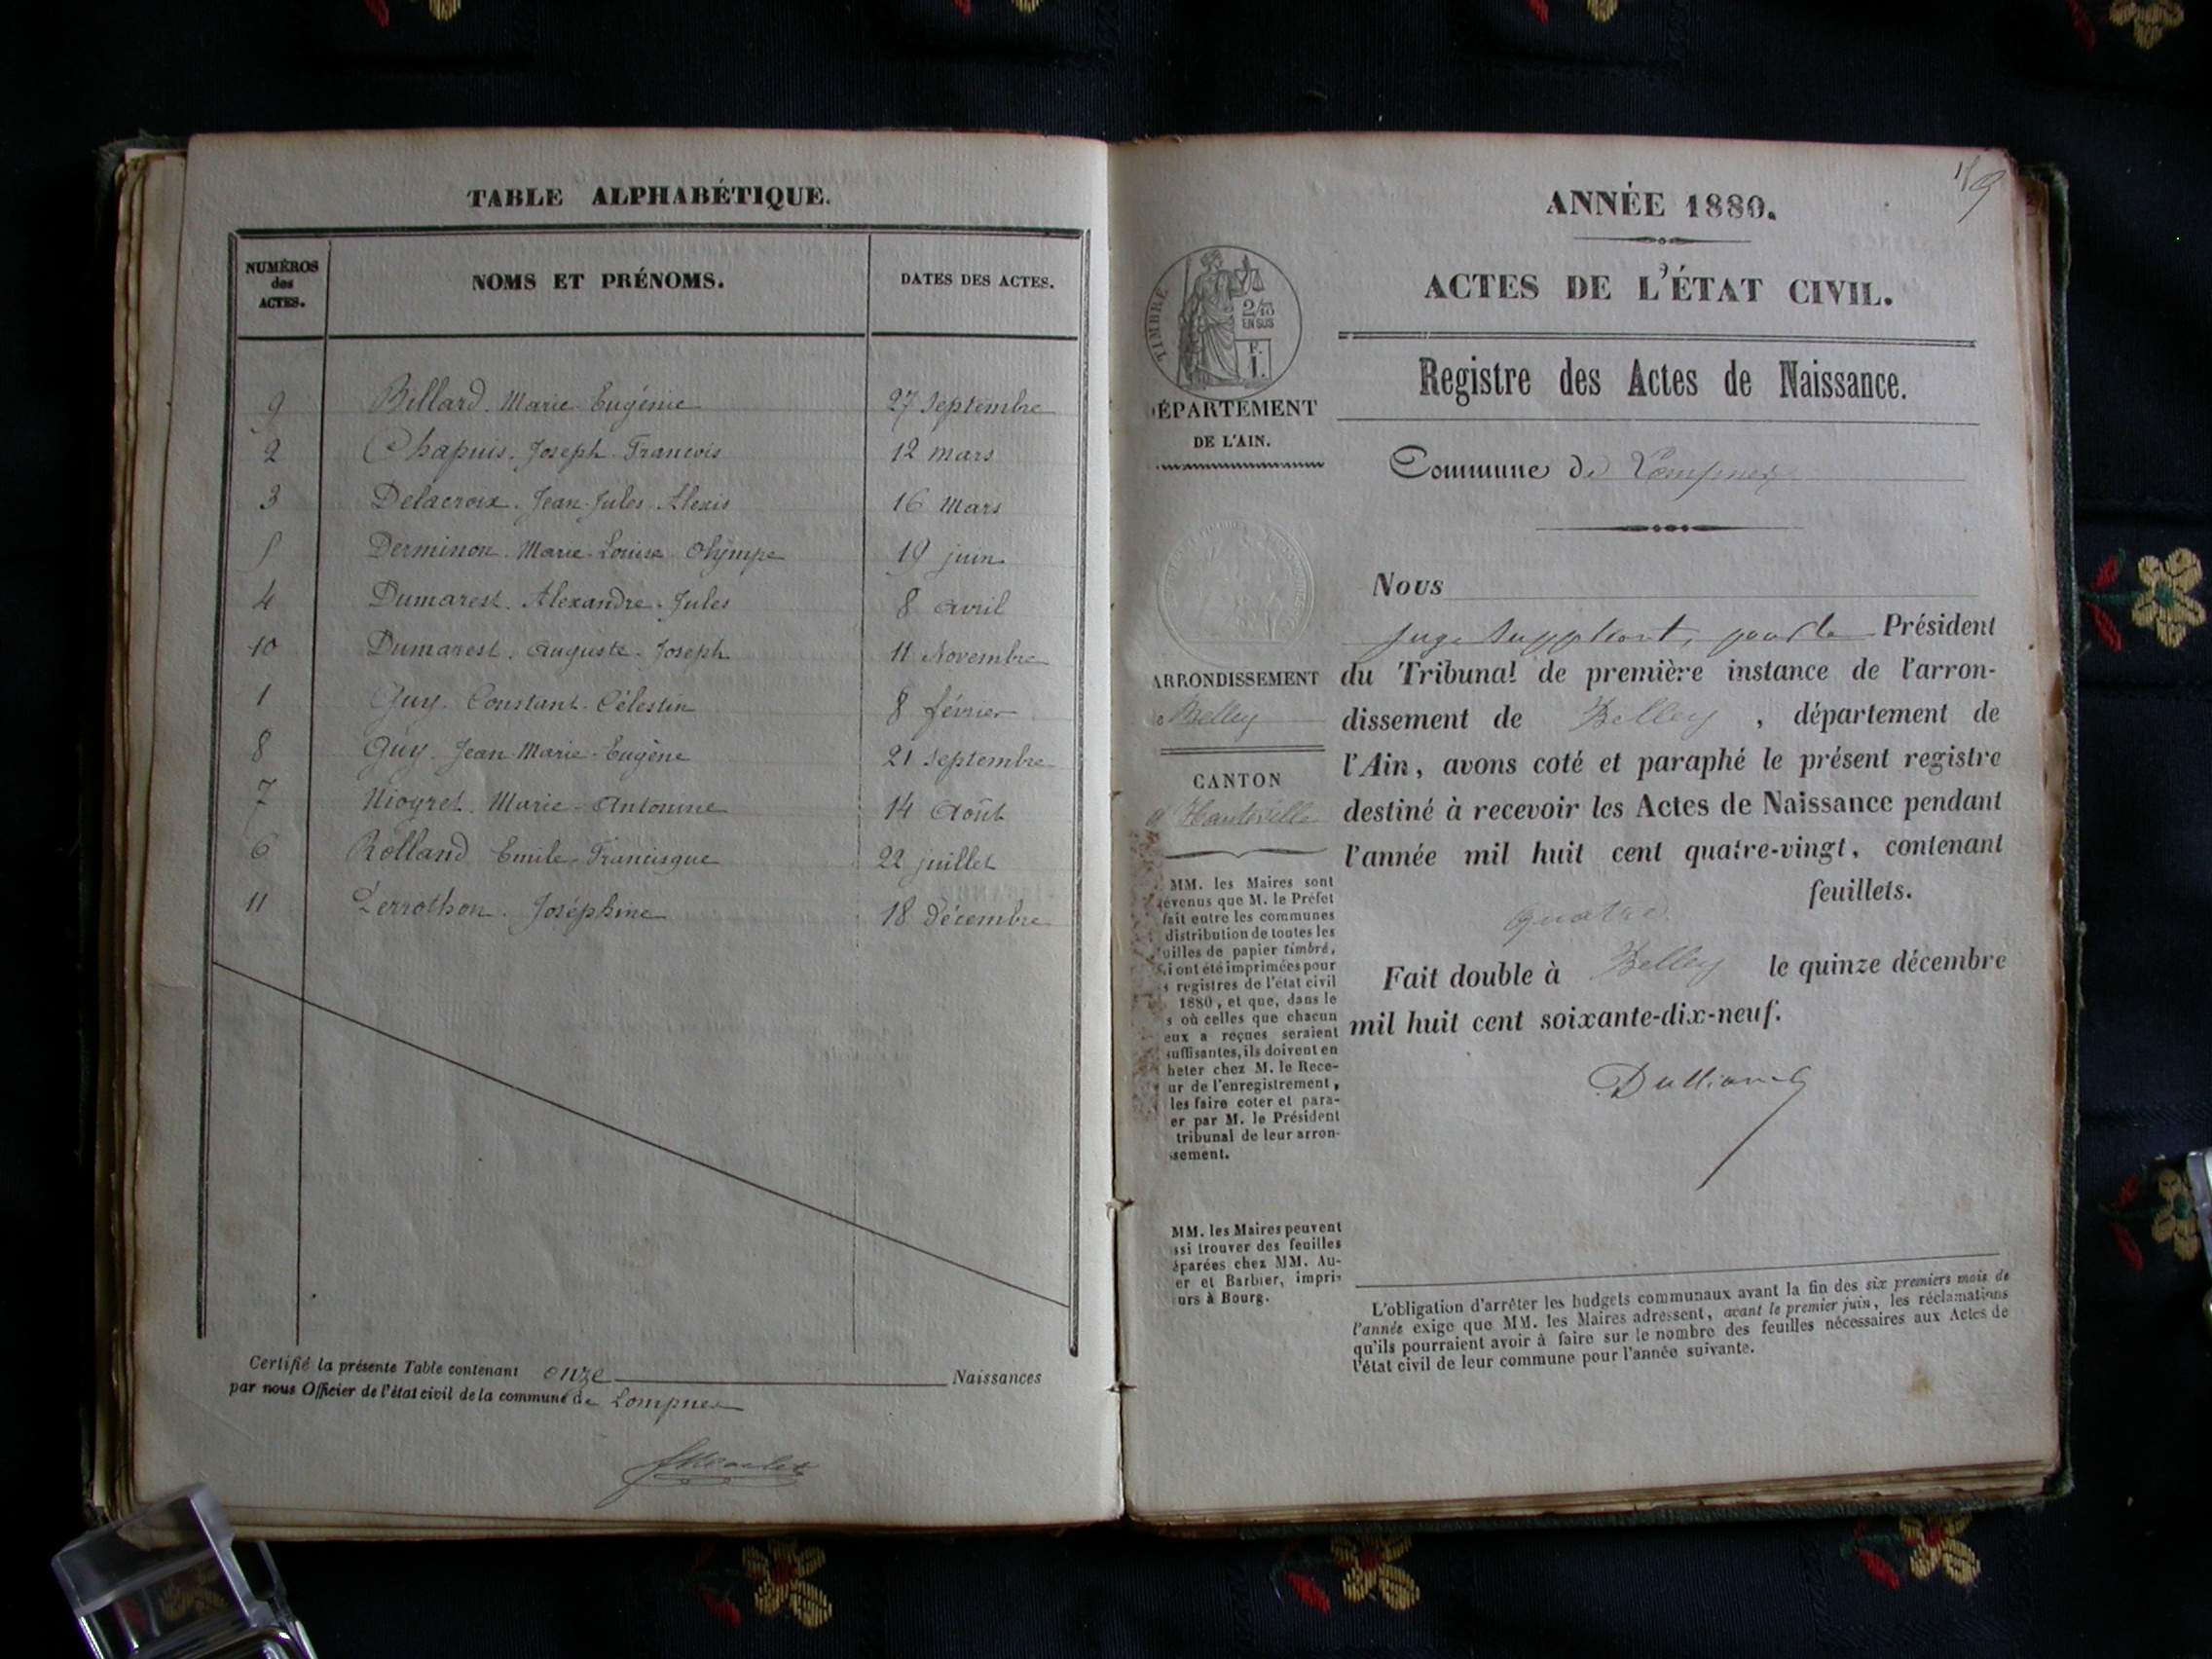 TABLE ALPHABÉTIQUE.
NUMÉROS des ACTES. NOMS ET PRÉNOMS. DATES DES ACTES.
9 Billard. Marie Eugénie 27 Septembre
2 Chapuis. Joseph Francois 12 mars
3 Delacroix. Jean Jules Alexis 16 Mars
5 Derminon. Marie Louise Olympe 19 juin
4 Dumarest. Alexandre Jules 8 avril
10 Dumarest. Auguste Joseph 11 Novembre
1 Guy. Constant Célestin 8 février
8 Guy. Jean Marie Eugène 21 Septembre
7 Nioyret. Marie Antonine 14 Août
6 Rolland Emile Francisque 22 juillet
11 Joséphine 18 Décembre
Certifié la présente Table contenant onze Naissances
par nous Officier de l'état civil de la commune de Lompnes
ANNÉE 1880.
ACTES DE L'ÉTAT CIVIL.
Registre des Actes de Naissance.
Commune de Lompnes
TIMBRE
2/10
EN SUS
F.
1.
DÉPARTEMENT
DE L'AIN.
ARRONDISSEMENT
Belley
CANTON
d'Hauteville
MM. les Maires sont
évenus que M. le Préfet
fait entre les communes
distribution de toutes les
uilles de papier timbré,
i ont été imprimées pour
s registres de l'état civil
1880, et que, dans le
s où celles que chacun
eux a reçues seraient
suffisantes, ils doivent en
heter chez M. le Rece-
ur de l'enregistrement,
les faire coter et para-
er par M. le Président
tribunal de leur arron-
ssement.
MM. les Maires peuvent
ssi trouver des feuilles
éparées chez MM. Au-
er et Barbier, impri-
urs à Bourg.
Nous
juge suppléant, pour le Président
du Tribunal de première instance de l'arron-
dissement de Belley, département de
l'Ain, avons coté et paraphé le présent registre
destiné à recevoir les Actes de Naissance pendant
l'année mil huit cent quatre-vingt, contenant
quatre feuillets.
Fait double à Belley le quinze décembre
mil huit cent soixante-dix-neuf.
L'obligation d'arrêter les budgets communaux avant la fin des six premiers mois de
l'année exige que MM. les Maires adressent, avant le premier juin, les réclamations
qu'ils pourraient avoir à faire sur le nombre des feuilles nécessaires aux Actes de
l'état civil de leur commune pour l'année suivante.